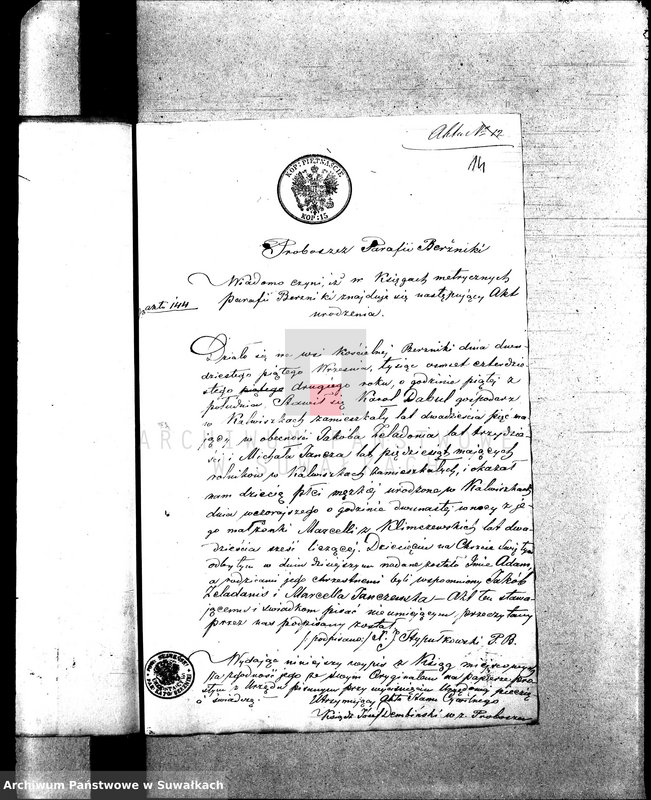 Aktu No 12
14
KOP: PIETNAŚCIE
KOP: 15
Proboszcz Parafii Berżniki
Wiadomo czyni, iż w Księgach metrycznych
parafii Berzniki znajduje się następujący Akt
urodzenia.
144
Działo się we wsi Kościelnej Berzniki dnia dwu-
dziestego piątego Września, tysiąc osmset czterdzie-
stego piątego drugiego roku, o godzinie piątej z
południa Stawił się Karol Dabul gospodarz
w Kalwiszkach zamieszkały lat dwadzieścia pięć ma-
jący w obecności Jakóba Zeladonia lat trzydzie-
ści i Michała Jancza lat pięćdziesiąt mających
rolników w Kalwiszkach zamieszkałych, i okazał
nam dziecię płci męzkiej urodzone w Kalwiszkach
dnia wczorajszego o godzinie dwunastej w nocy z je-
go małżonki Marcelli z Klimczewskich lat dwa-
dzieścia sześć liczącej. Dziecięciu na Chrzcie Świętym
odbytym w dniu dzisiejszym nadane zostało Imie Adam,
a rodzicami jego chrzestnemi byli wspomniony Jakób
Zeladanis i Marcella Janczewska – Akt ten stawa-
jącemu i świadkom pisać nieumiejącym przeczytany
przez nas podpisany został.
/podpisano/ X. J Hypułkowski P. B.
Wydając niniejszy wypis z Ksiąg miejscowych
za zgodność jego ze swym Oryginałem na papierze pro-
stym z Urzędu pisanym przy wyciśnieniu Urzędowej pieczęci
świadczę.
Utrzymujący Akta Stanu Cywilnego
Ksiądz Józef Dembiński w z. Proboszcza
ARCHIWUM PAŃSTWOWE
W SUWAŁKACH
Archiwum Państwowe w Suwałkach